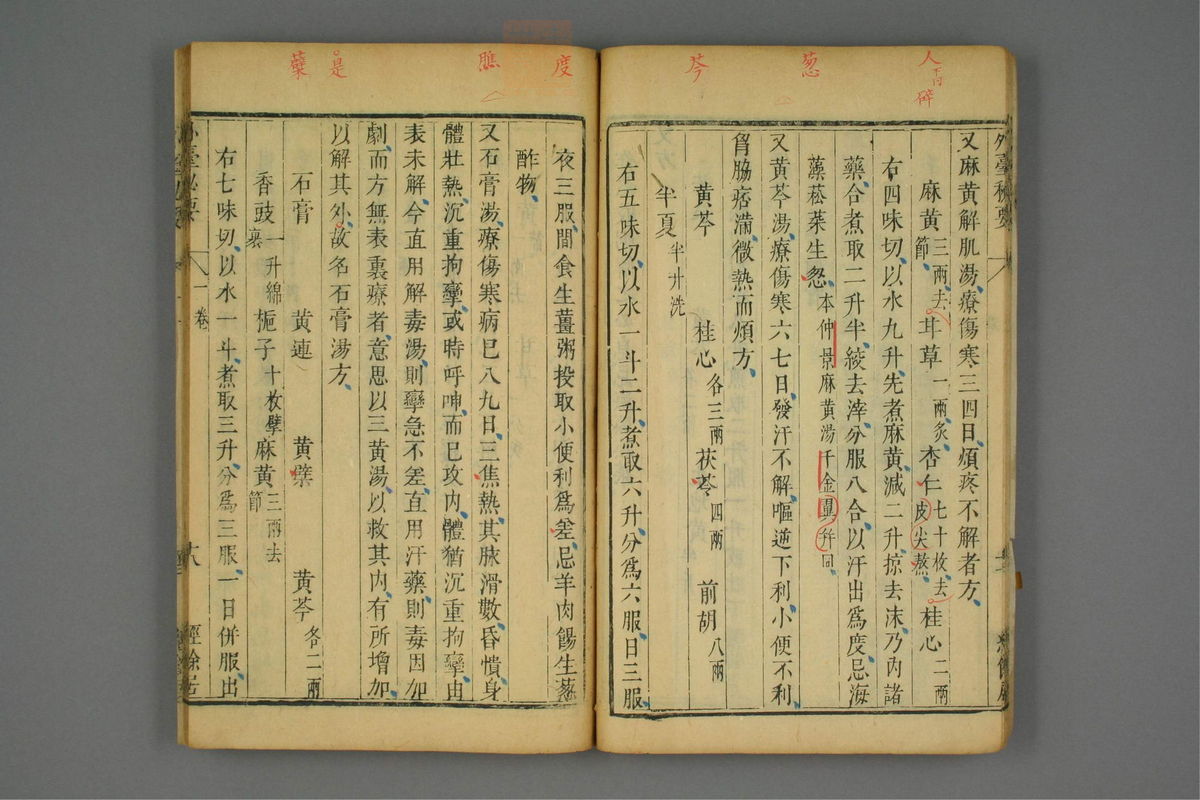 人 下同 碎
葱
芩
外臺秘要
又麻黃解肌湯療傷寒三四日煩疼不解者方
麻黃三兩去節 甘草一兩炙 杏仁七十枚去皮尖熬 桂心二兩
右四味切以水九升先煮麻黃減二升掠去沫乃內諸
藥合煮取二升半絞去滓分服八合以汗出爲度忌海
藻菘菜生忽本仲景麻黃湯千金翼并同
又黃芩湯療傷寒六七日發汗不解嘔逆下利小便不利
胷脇痞滿微熱而煩方
黃芩 桂心各三兩 茯苓四兩 前胡八兩
半夏半廾洗
右五味切以水一斗二升煮取六升分爲六服日三服
度
醮
是
蘗
夜三服間食生薑粥投取小便利爲差忌羊肉餳生葱
酢物
又石膏湯療傷寒病巳八九日三焦熱其脉滑數昏憒身
體壯熱沉重拘攣或時呼呻而巳攻内體猶沉重拘攣由
表未解今直用解毒湯則攣急不差直用汗藥則毒因加
劇而方無表裏療者意思以三黃湯以救其内有所增加
以解其外故名石膏湯方
石膏 黃連 黃檗 黃芩各二兩
香豉一升綿裹 梔子十枚擘 麻黃三兩去節
右七味切以水一斗煮取三升分爲三服一日併服出
卷一
經餘居